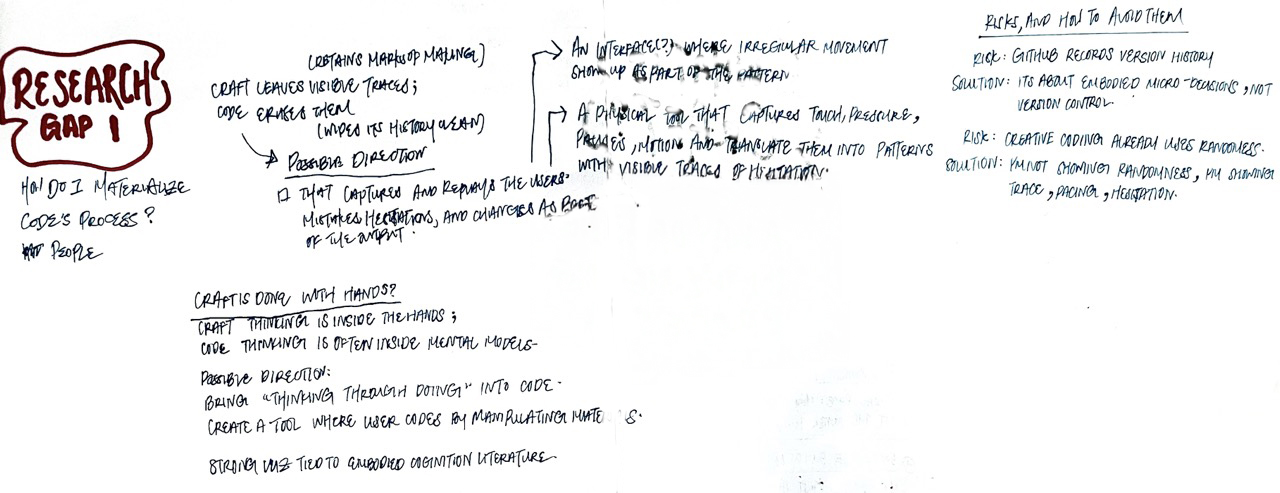 RESEARCH
GAP 1
HOW DO I MATERIALIZE
CODE'S PROCESS?
PEOPLE
(RETAINS MARKS OF MAKING)
CRAFT LEAVES VISIBLE TRACES;
CODE ERASES THEM
(HIDES ITS HISTORY CLEAN)
POSSIBLE DIRECTION
THAT CAPTURES AND REPLAYS THE USERS'
MISTAKES HESITATIONS, AND CHANGES AS PART
OF THE OUTPUT.
AN INTERFACE(?) WHERE IRREGULAR MOVEMENT
SHOW UP AS PART OF THE PATTERN
A PHYSICAL TOOL THAT CAPTURES TOUCH, PRESSURE,
PAUSES, MOTION AND TRANSLATE THEM INTO PATTERNS
WITH VISIBLE TRACES OF HESITATION.
RISKS, AND HOW TO AVOID THEM
RISK: GITHUB RECORDS VERSION HISTORY
SOLUTION: ITS ABOUT EMBODIED MICRO-DECISIONS, NOT
VERSION CONTROL.
RISK: CREATIVE CODING ALREADY USES RANDOMESS.
SOLUTION: I'M NOT SHOWING RANDOMNESS, I'M SHOWING
TRACE, PACING, HESITATION.
CRAFT IS DONE WITH HANDS?
CRAFT THINKING IS INSIDE THE HANDS;
CODE THINKING IS OFTEN INSIDE MENTAL MODELS-
POSSIBLE DIRECTION:
BRING "THINKING THROUGH DOING" INTO CODE-
CREATE A TOOL WHERE USER CODES BY MANIPULATING MATE S.
STRONG TIED TO EMBODIED COGINITION LITERATURE